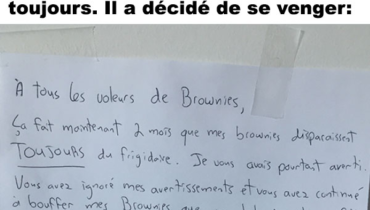 toujours. Il a décidé de se venger:
À tous les voleurs de Brownies,
Ça fait maintenant 2 mois que mes brownies disparaissent
TOUJOURS du frigidaire. Je vous avais pourtant averti.
Vous avez ignoré mes avertissements et vous avez continué
à bouffer mes Brownies que